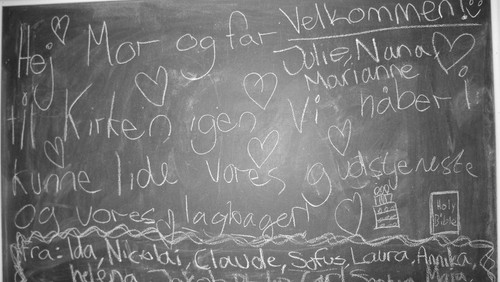 Velkommen!
Hej Mor og far
Julie, Nana
Marianne
til Kirken igen Vi håber i
kunne lide vores gudstjeneste
og vores lagkager
Holy Bible
Fra: Ida, Nicolai, Claude, Sofus, Laura, Annika,
helena